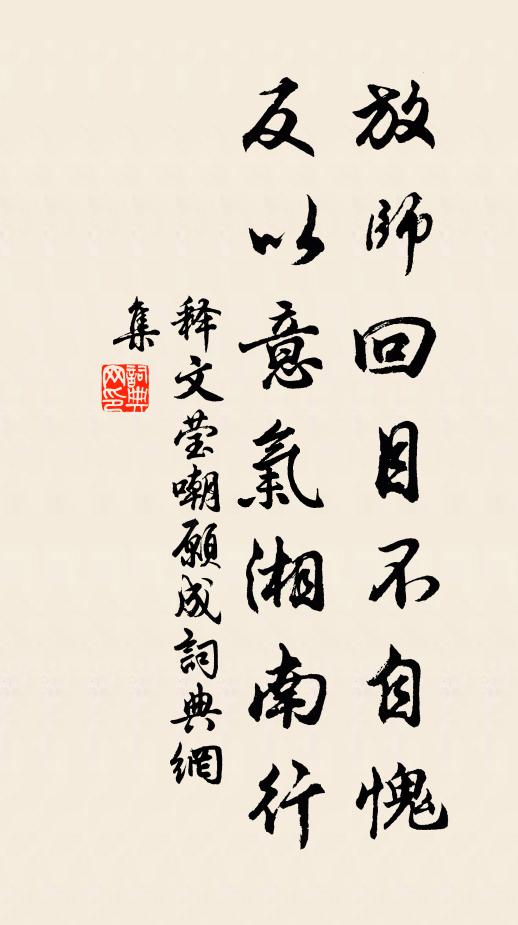 放師回目不自愧
反以意氣湘南行
释文莹嘲願成詞典網
集
詞典網印